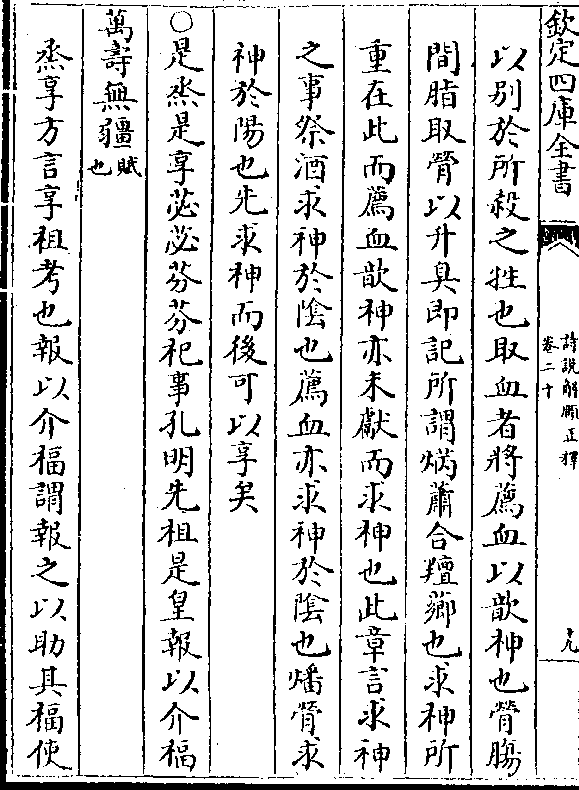 欽定四庫全書
詩說解頤正釋
卷二十
十九
以別於所殺之牲也取血者將薦血以歆神也膋腸
間脂取膋以升臭即記所謂焫蕭合羶薌也求神所
重在此而薦血歆神亦未獻而求神也此章言求神
之事祭酒求神於陰也薦血亦求神於陰也燔膋求
神於陽也先求神而後可以享矣
○是烝是享苾苾芬芬祀事孔明先祖是皇報以介福
萬壽無疆賦也
烝享方言享祖考也報以介福謂報之以助其福使